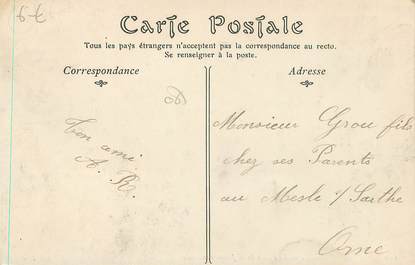 Carte Postale
Tous les pays étrangers n'acceptent pas la correspondance au recto.
Se renseigner à la poste.
Correspondance
Ton ami
A. R.
Adresse
Monsieur Grou fils
chez ses Parents
au Mesle s/ Sarthe
Orne